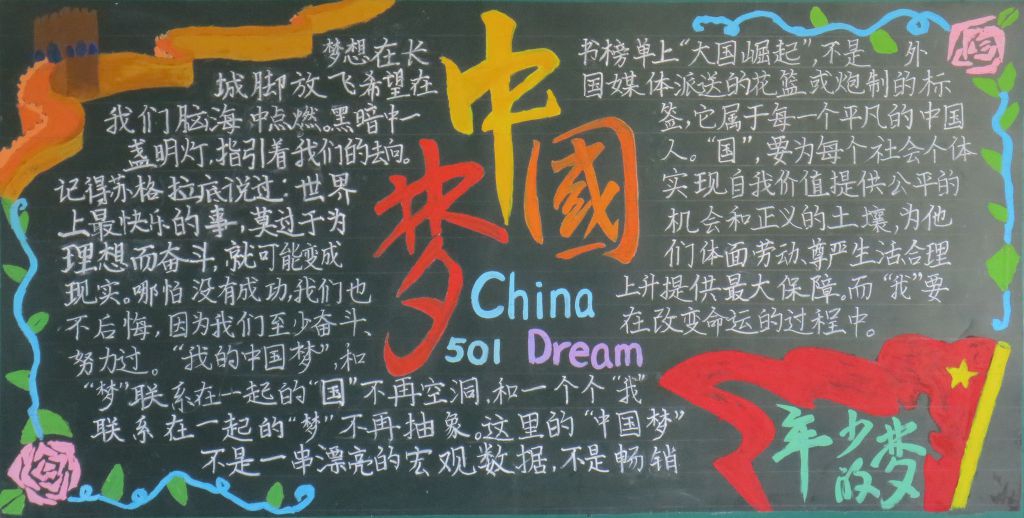 中國
梦
China
501 Dream
梦想在长
城脚放飞希望在
我们脑海中点燃。黑暗中一
盏明灯,指引着我们的去向。
记得苏格拉底说过:世界
上最快乐的事,莫过于为
理想而奋斗,就可能变成
现实。哪怕没有成功,我们也
不后悔,因为我们至少奋斗、
努力过。“我的中国梦”,和
“梦”联系在一起的“国”不再空洞,和一个个“我”
联系在一起的“梦”不再抽象。这里的“中国梦”
不是一串漂亮的宏观数据,不是畅销
书榜单上“大国崛起”,不是 外
国媒体派送的花篮或炮制的标
签,它属于每一个平凡的中国
人。“国”,要为每个社会个体
实现自我价值提供公平的
机会和正义的土壤,为他
们体面劳动、尊严生活合理
上升提供最大保障。而“我”要
在改变命运的过程中。
年少的梦